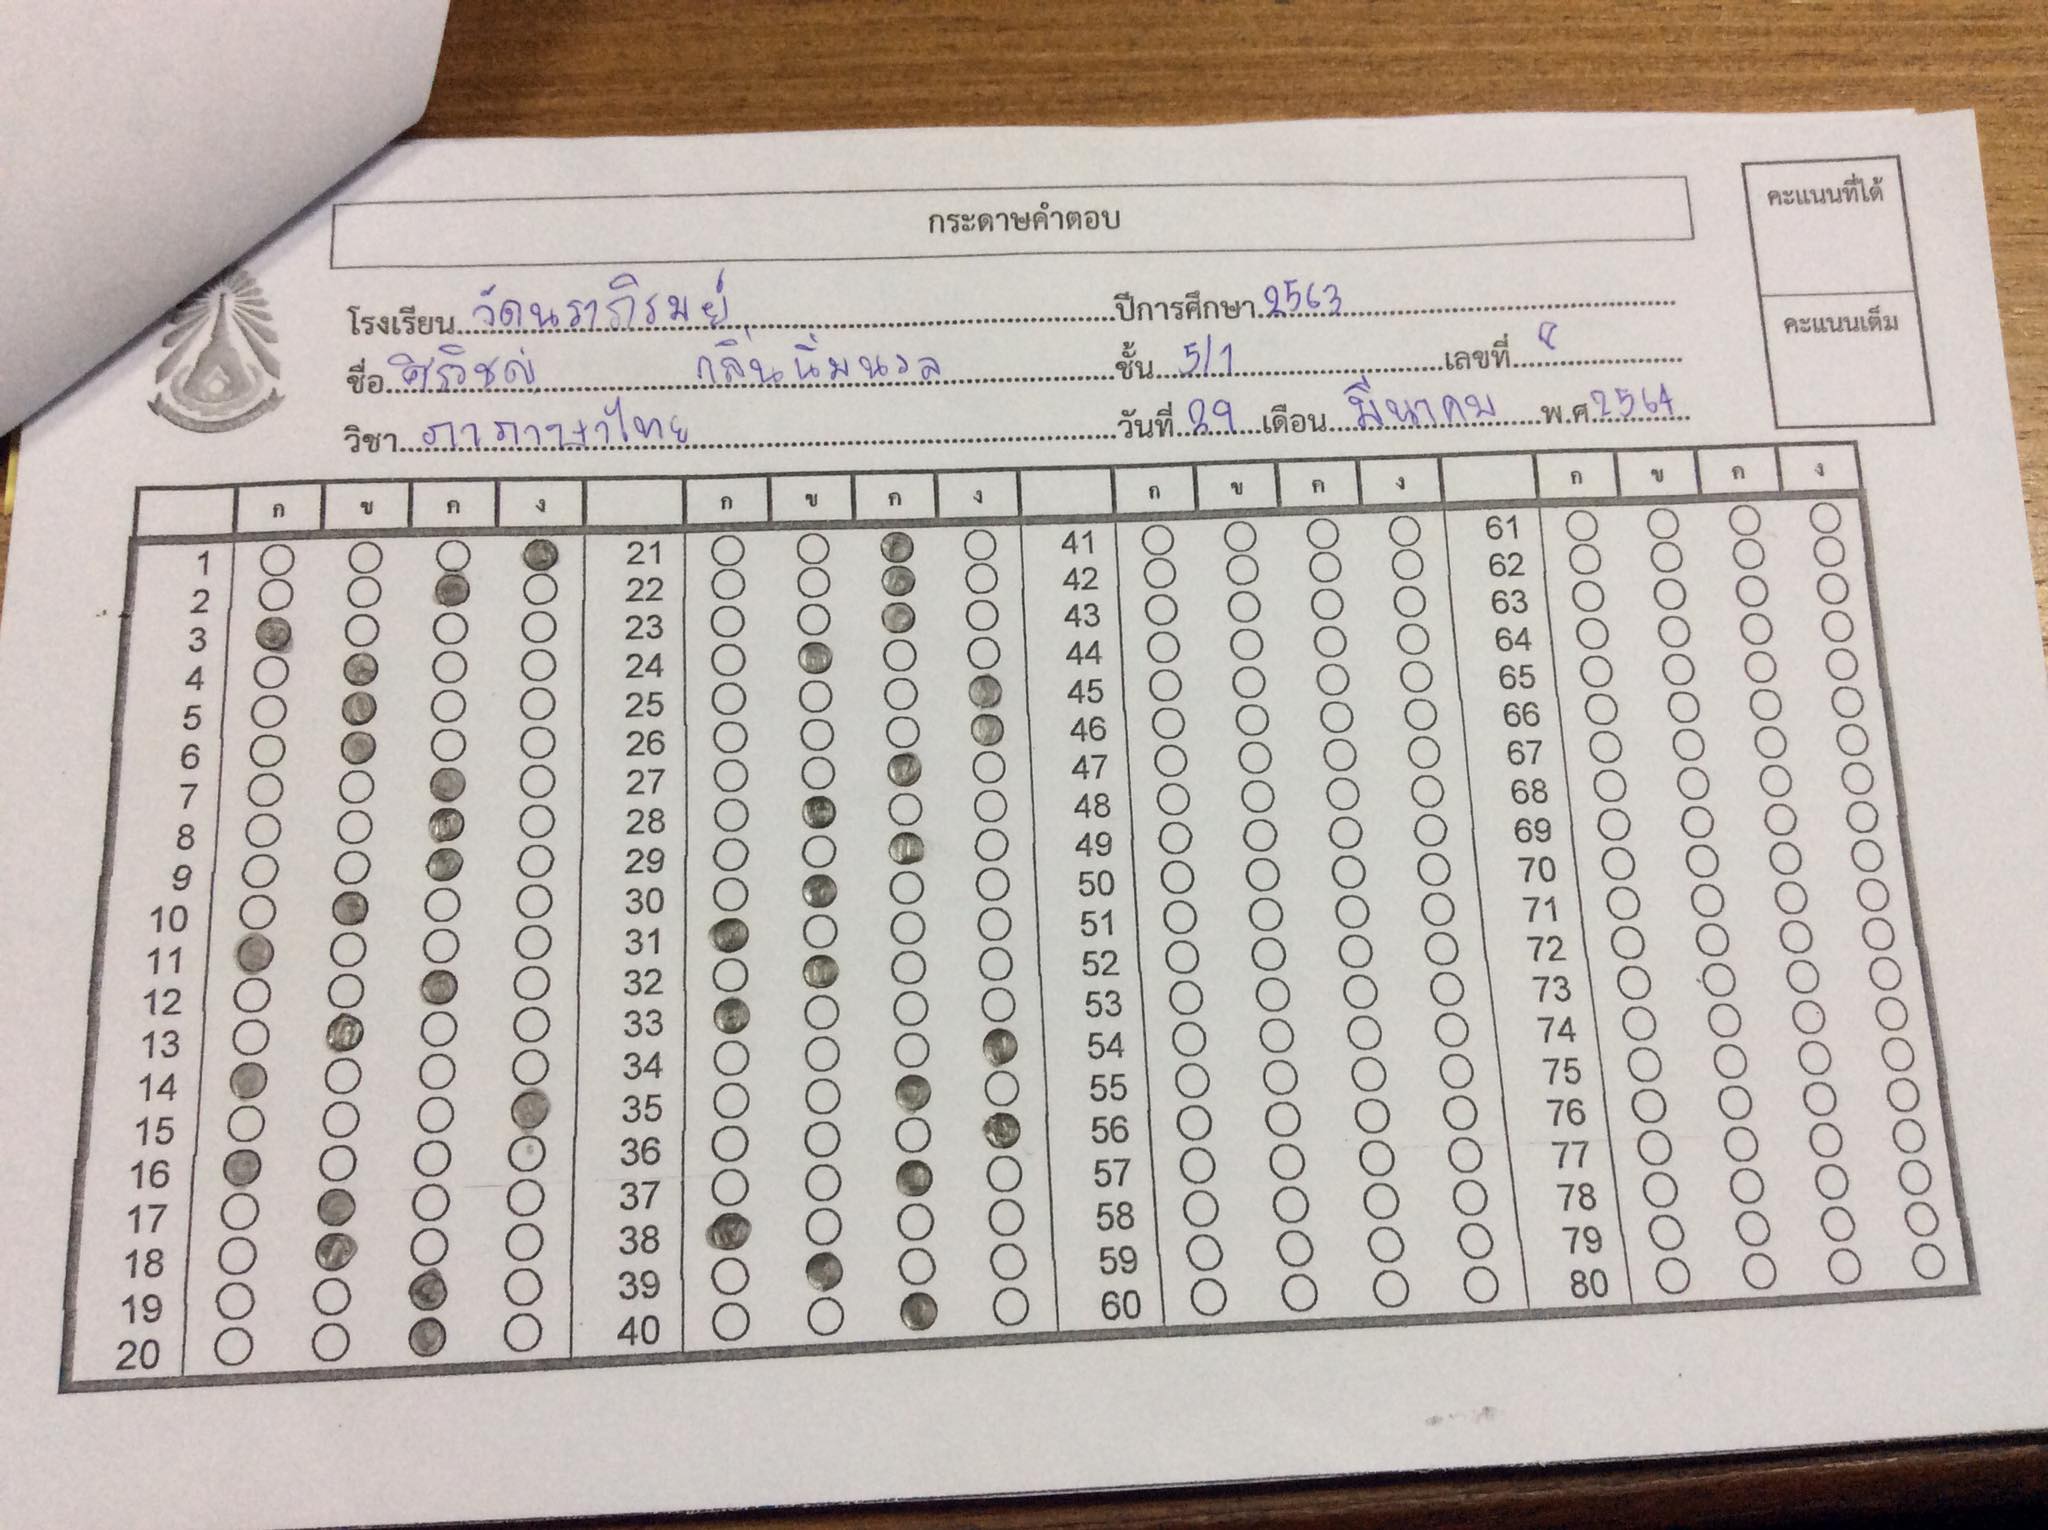 กระดาษคำตอบ
คะแนนที่ได้
คะแนนเต็ม
โรงเรียน วัดนราภิรมย์ ปีการศึกษา 2563
ชื่อ ศิรวิชญ์ กลิ่นนิ่มนวล ชั้น 5/1 เลขที่ 8
วิชา ภาภาษาไทย วันที่ 29 เดือน มีนาคม พ.ศ. 2564
ก ข ค ง ก ข ค ง ก ข ค ง ก ข ค ง
1 21 41 61
2 22 42 62
3 23 43 63
4 24 44 64
5 25 45 65
6 26 46 66
7 27 47 67
8 28 48 68
9 29 49 69
10 30 50 70
11 31 51 71
12 32 52 72
13 33 53 73
14 34 54 74
15 35 55 75
16 36 56 76
17 37 57 77
18 38 58 78
19 39 59 79
20 40 60 80